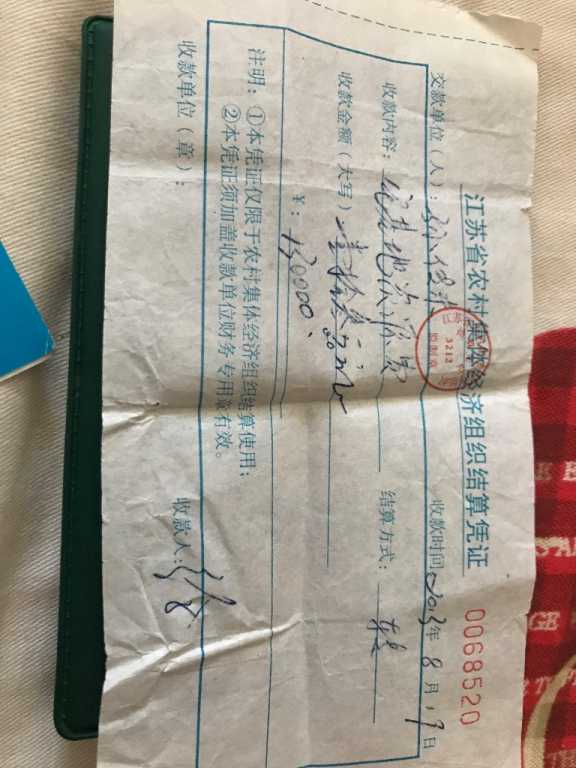 江苏省农村集体经济组织结算凭证
0068520
交款单位（人）：
收款时间 2013年 8月 19日
收款内容： 宅基地资源费
结算方式：
收款金额（大写） 壹拾叁万元
¥： 130000.
注明：①本凭证仅限于农村集体经济组织结算使用；
②本凭证须加盖收款单位财务专用章有效。
收款单位（章）：
收款人：
3212